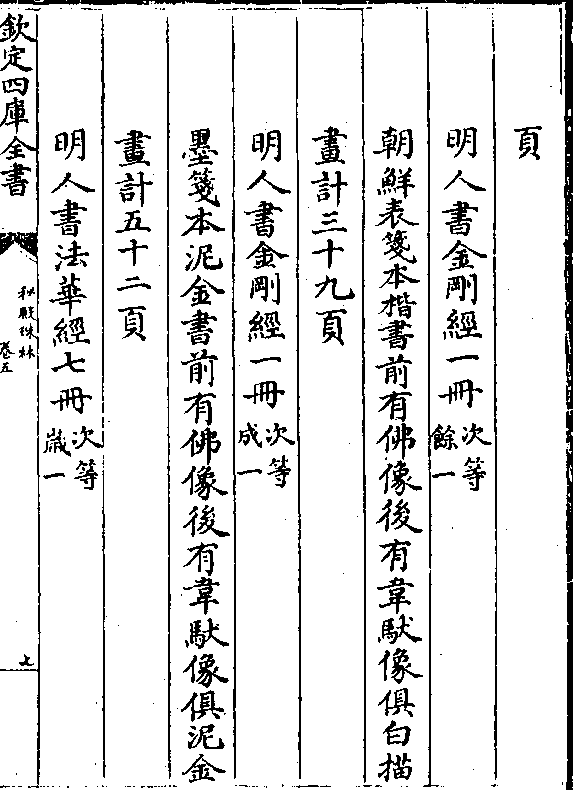 頁
明人書金剛經一冊次等餘一
朝鮮表箋本楷書前有佛像後有韋馱像俱白描
畫計三十九頁
明人書金剛經一冊次等成一
墨箋本泥金書前有佛像後有韋馱像俱泥金
畫計五十二頁
明人書法華經七冊次等歲一
欽定四庫全書
秘殿珠林
卷五
七